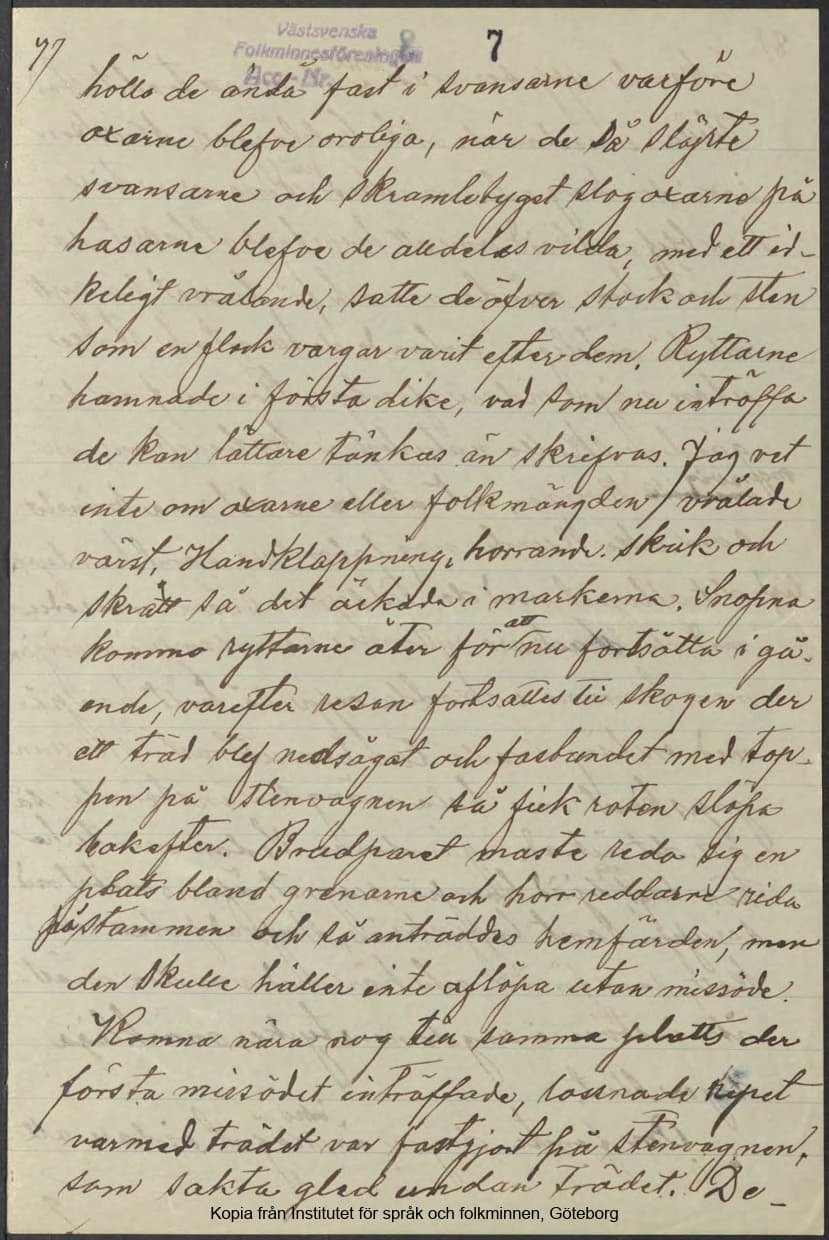 7/
Västsvenska
Folkminnesföreningen
Acc. Nr.
7
höllo de ändå fast i svansarne varföre
oxarne blefve oroliga, när de så släpte
svansarne och skramletyget slog oxarne på
hasarne blefve de alldeles vilda, med ett id-
keligt vrålande, satte de öfver stock och sten
som en flock vargar varit efter dem. Ryttarne
hamnade i första dike, vad som nu inträffa
de kan lättare tänkas än skrifvas. Jag vet
inte om oxarne eller folkmängden vrålade
värst, Handklappning, horrande. skrik och
skratt så det äckade i markerna. Snopna
kommo ryttarne åter för att nu fortsätta i gå-
ende, varefter resan fortsattes till skogen der
ett träd blef nedsågat och fasbundet med top-
pen på stenvagnen så fick roten släpa
bakefter. Brudparet maste reda sig en
plats bland grenarne och horr reddarne rida
på stammen och så anträddes hemfärden, men
den skulle häller inte aflöpa utan missöde.
Komna nära nog till samma platts der
första missödet inträffade, lossnade repet
varmed trädet var fastgjort på stenvagnen,
som sakta gled undan trädet. De-
Kopia från Institutet för språk och folkminnen, Göteborg